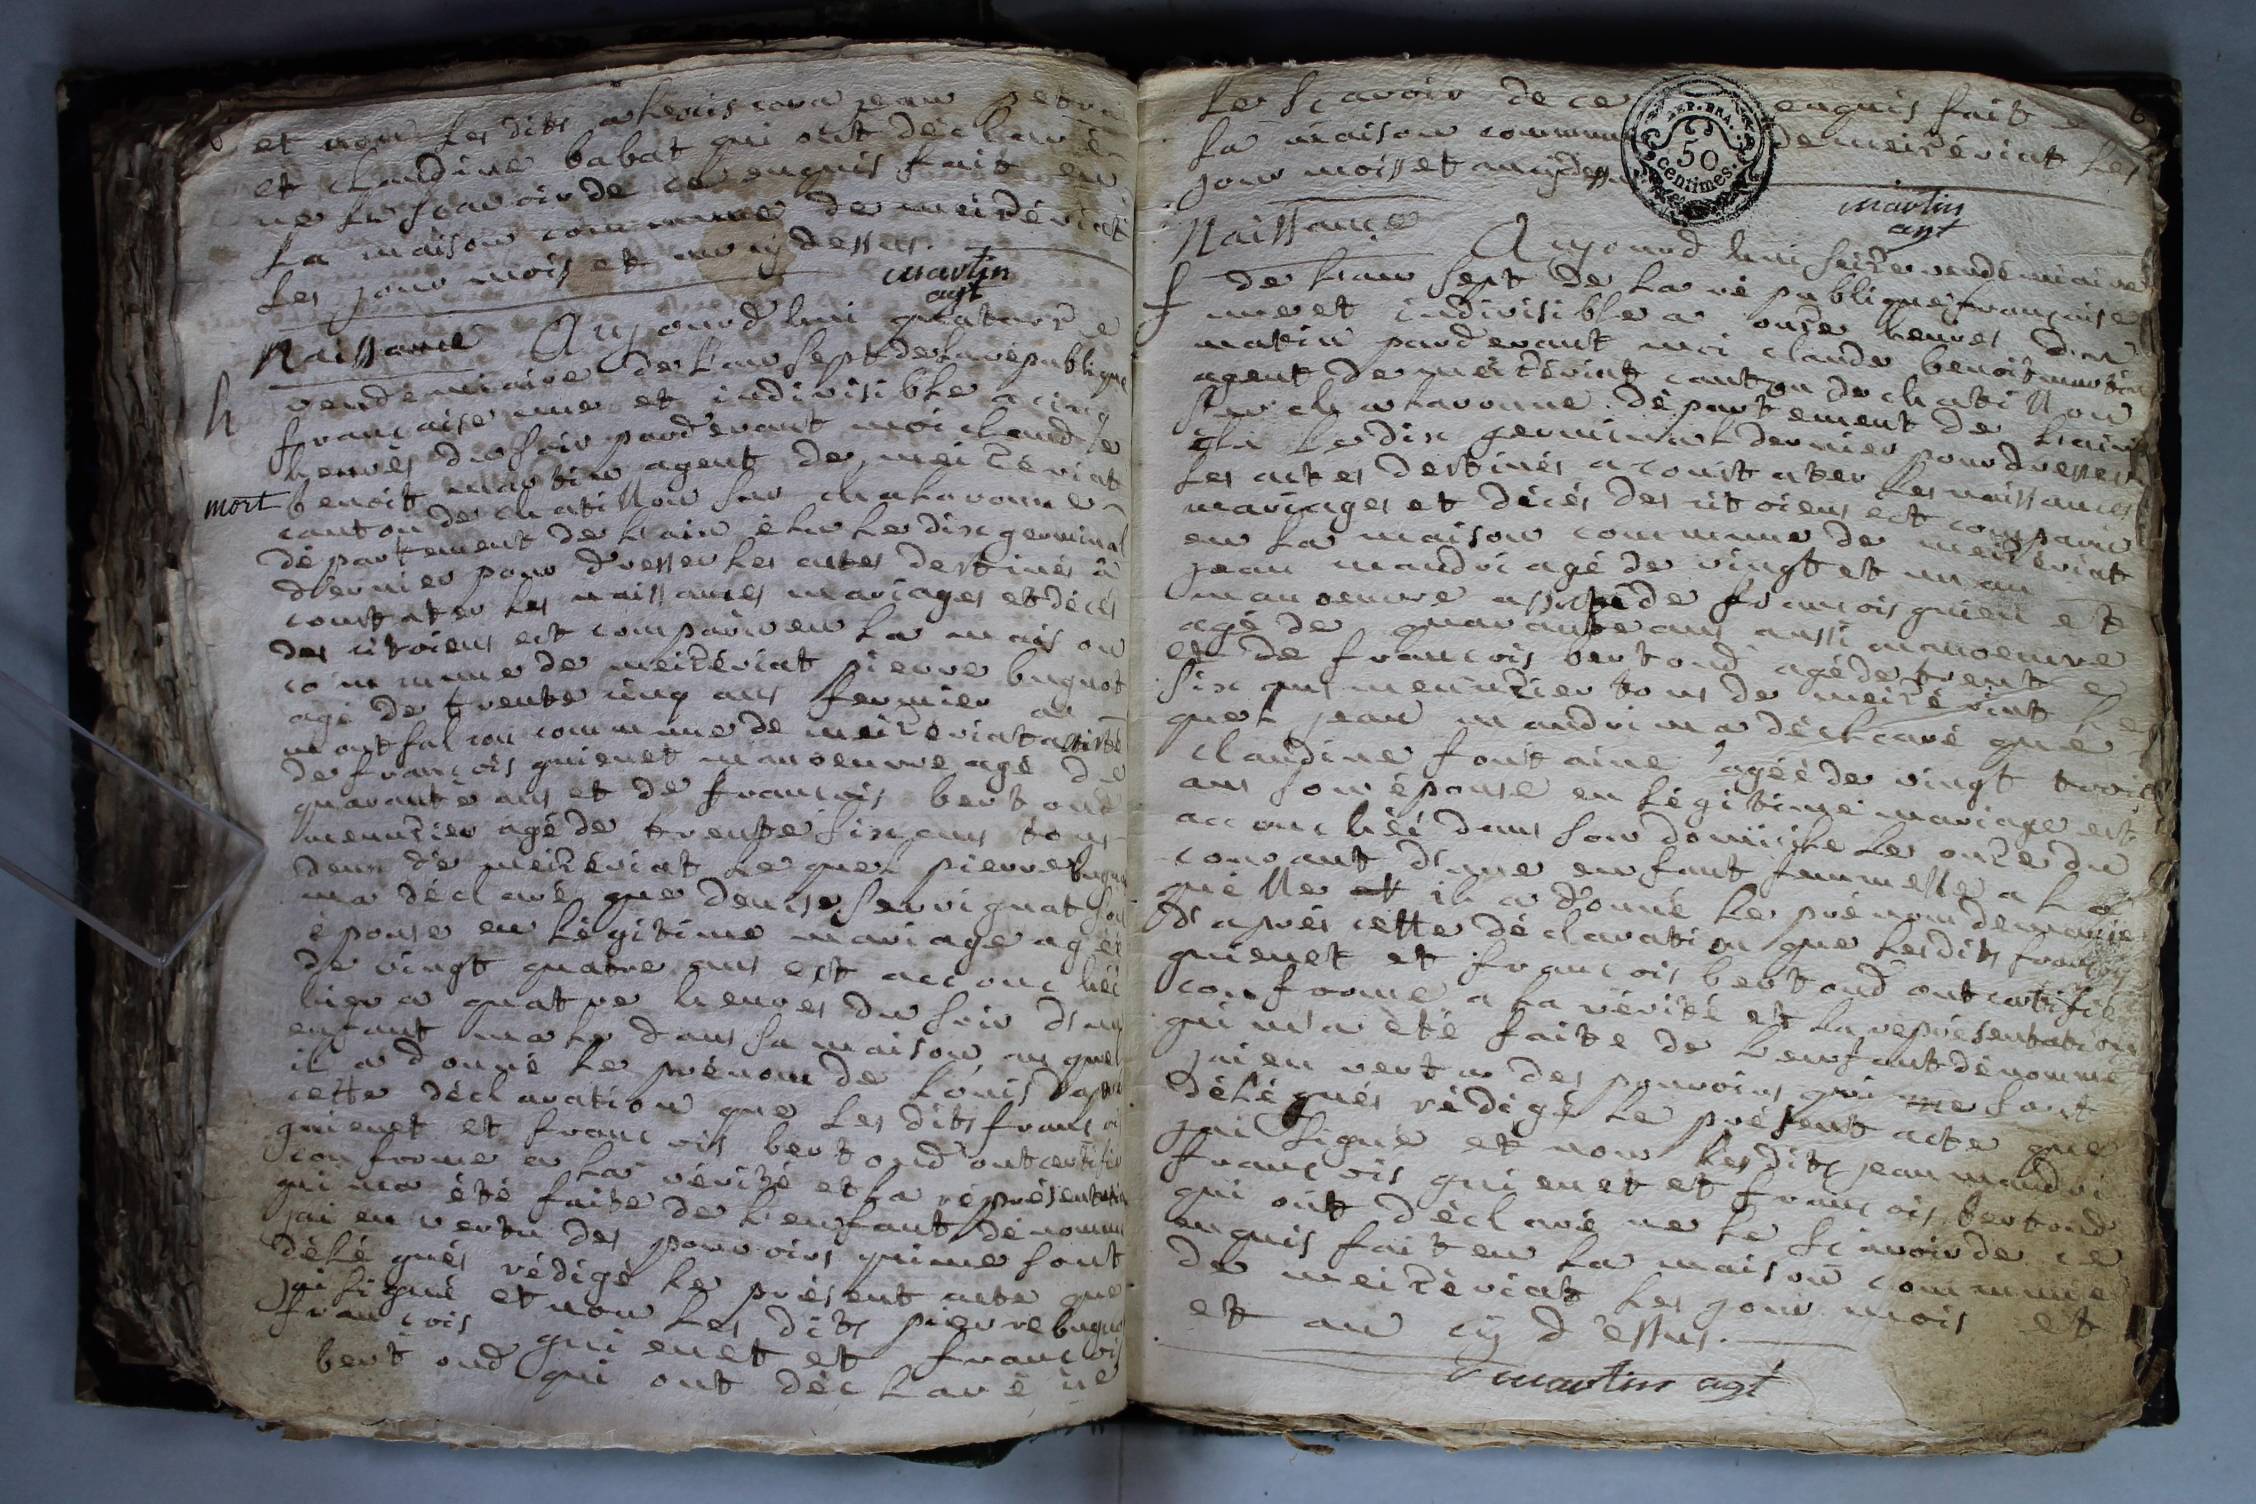 6
et non les dits alexis cora jean petra
et claudine babat qui ont déclaré
ne le scavoir de ce enquis fait en
la maison commune de meizériat
les jour mois et an cij dessus.
martin
agt
Naissance Aujourd hui quatorze
vendemiaire de l'an sept de la république
h
française une et indivisible a cinq
heures du soir pardevant moi claude
benoit martin agent de meizériat
mort
canton de chatillon sur chalaronne
département de l'ain élu le dix germinal
dernier pour dresser les actes destinés a
constater les naissances mariages et décés
des citoiens est comparu en la maison
commune de meizériat pierre bugnot
agé de trente cinq ans fermier a
montfalcon commune de meizériat assisté
de françois guienet manoeuvre agé de
quarante ans et de françois bertond
menuzier agé de trente six ans tous
deux de meizériat le quel pierre bugno
ma déclaré que denise servignat son
épouse en légitime mariage agéé
de vingt quatre ans est accouchéé
hier a quatre heures du soir d'un
enfant male dans sa maison au quel
il a donné le prénom de louis d'aprés
cette déclaration que les dits françois
guienet et françois bertond ont certifié
conforme a la vérité et la représentation
qui ma été faite de l'enfant dénommé
jai en vertu des pouvoirs qui me sont
délégués rédigé le présent acte que
jai signé et non les dits pierre bugno
françois guienet et françois
bertond qui ont déclaré ne
6
le scavoir de ce enquis fait
la maison commune de meizériat les
jour mois et an cij dessus
DEP. BRA.
50
centimes.
martin
agt
Naissance Aujourd hui seize vendémiaire
f
de l'an sept de la république française
une et indivisible a onze heures du
matin pardevant moi claude benoit martin
agent de meizériat canton de chatillon
sur chalaronne département de l'ain
élu le dix germinal dernier pour dresser
les actes destinés a constater les naissances
mariages et décés des citoiens est comparu
en la maison commune de meizériat
jean mandri agé de vingt et un an
manoeuvre assisté de françois guienet
agé de quarante ans aussi manoeuvre
et de françois bertond agé de trente
six ans menuzier tous de meizériat le
quel jean mandri ma déclaré que
claudine fontaine agéé de vingt trois
ans son épouse en légitime mariage est
accouchéé dans son domicile le onze du
courant d'une enfant fummelle a la
quelle il a donné le prénom de marie
d'aprés cette déclaration que les dits françois
guienet et françois bertond ont certifié
conforme a la vérité et la représentation
qui m'a été faite de l'enfant dénommé
jai en vertu des pouvoirs qui me sont
délégués rédigé le présent acte que
jai signé et non les dits jean mandri
françois guienet et françois bertond
qui ont déclaré ne le scavoir de ce
enquis fait en la maison commune
de meizériat les jour mois et
et an cij dessus.
martin agt